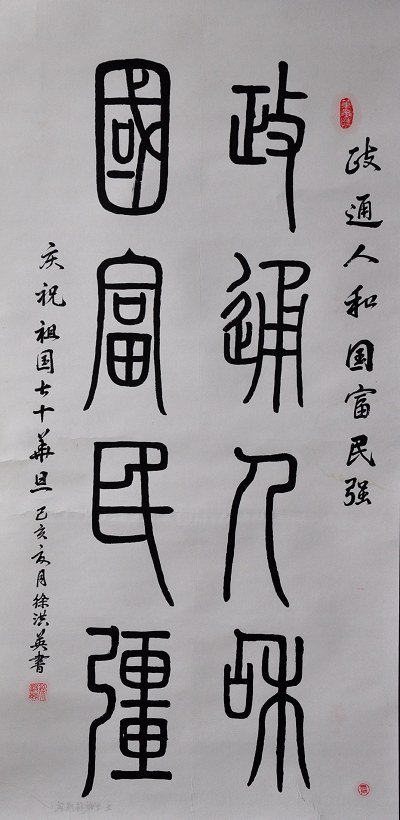 政通人和国富民强
政通人和
國富民彊
庆祝祖国七十华旦己亥夏月徐洪英书